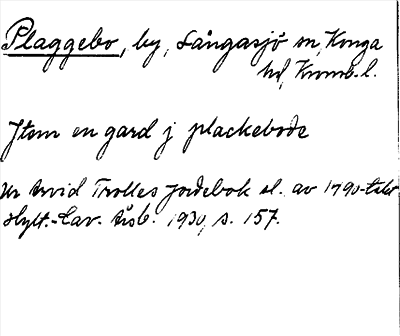 Plaggebo, by, Långasjö sn, Konga
hd, Kronob. l.
Jtem en gard j plackebode
Ur Arvid Trolles Jordebok sl. av 1790-talet
Hylt.-Cav. Årsb. 1930, s. 157.